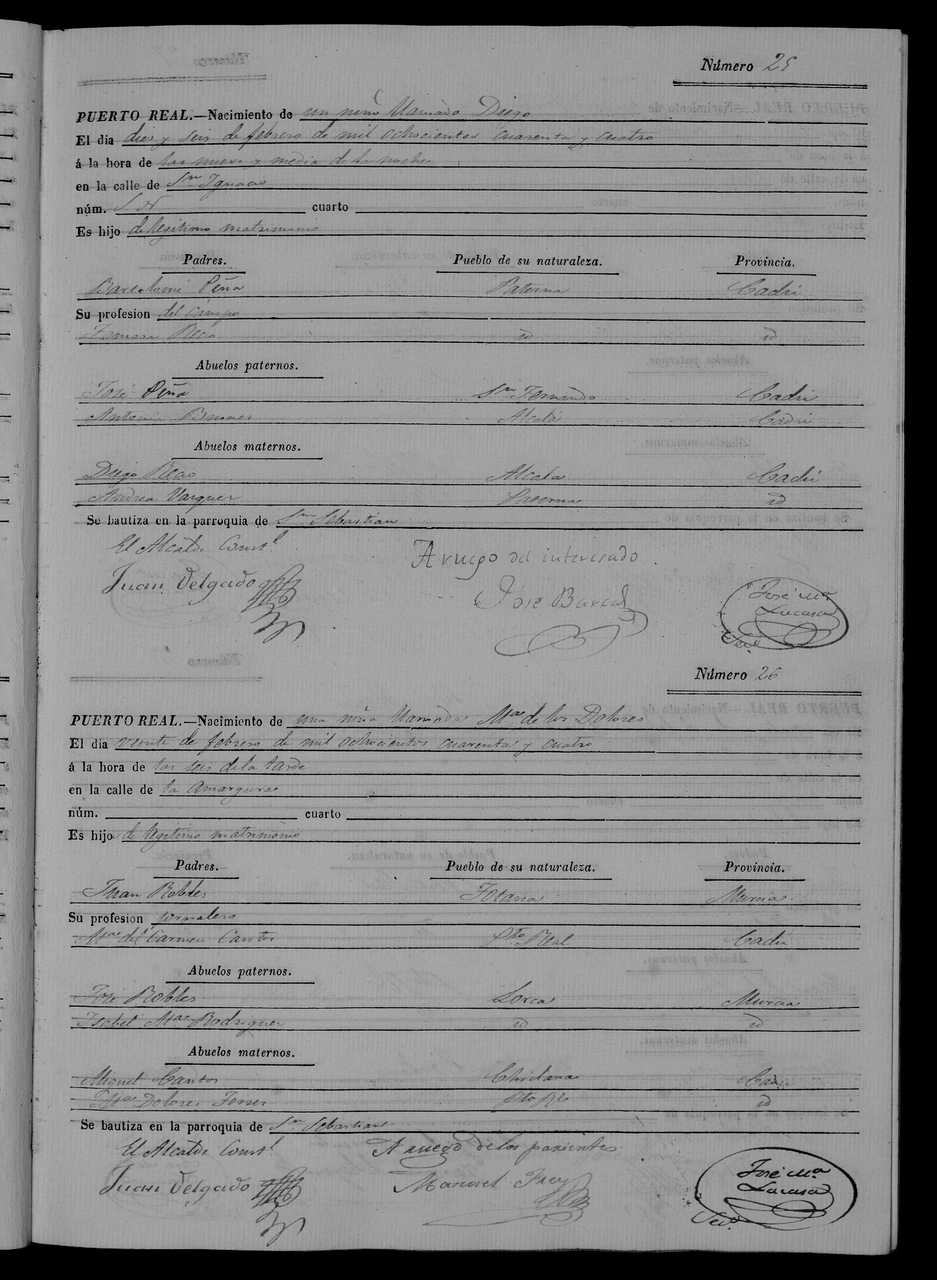 Número 25
PUERTO REAL.—Nacimiento de un niño llamado Diego
El dia diez y seis de febrero de mil ochocientos cuarenta y cuatro
á la hora de las nueve y media de la noche
en la calle de Sn Ignacio
núm. cuarto
Es hijo de legitimo matrimonio
Padres. Pueblo de su naturaleza. Provincia.
Bartolomé Peña Paterna Cadiz
Su profesion del Campo
id id
Abuelos paternos.
José Peña Sn Fernando Cadiz
Antonia Alcalá Cadiz
Abuelos maternos.
Diego Alcala Cadiz
Andrea Vazquez id
Se bautiza en la parroquia de Sn Sebastian
El Alcalde Const.l
A ruego del interesado
Juan Delgado José
José Ma
Lacasa
Srio
Número 26
PUERTO REAL.—Nacimiento de una niña llamada Ma de los Dolores
El dia veinte de febrero de mil ochocientos cuarenta y cuatro
á la hora de las seis de la tarde
en la calle de la Amargura
núm. cuarto
Es hijo de legitimo matrimonio
Padres. Pueblo de su naturaleza. Provincia.
Juan Robles Totana Murcia
Su profesion jornalero
Ma del Carmen Cantos Pto Real Cadiz
Abuelos paternos.
José Robles Lorca Murcia
Isabel Ma Rodriguez id id
Abuelos maternos.
Miguel Cantos Chiclana Cadiz
Ma Dolores Ferrer Pto Rl id
Se bautiza en la parroquia de Sn Sebastian
El Alcalde Const.l A ruego de los parientes
Juan Delgado Manuel Frey
José Ma
Lacasa
Srio